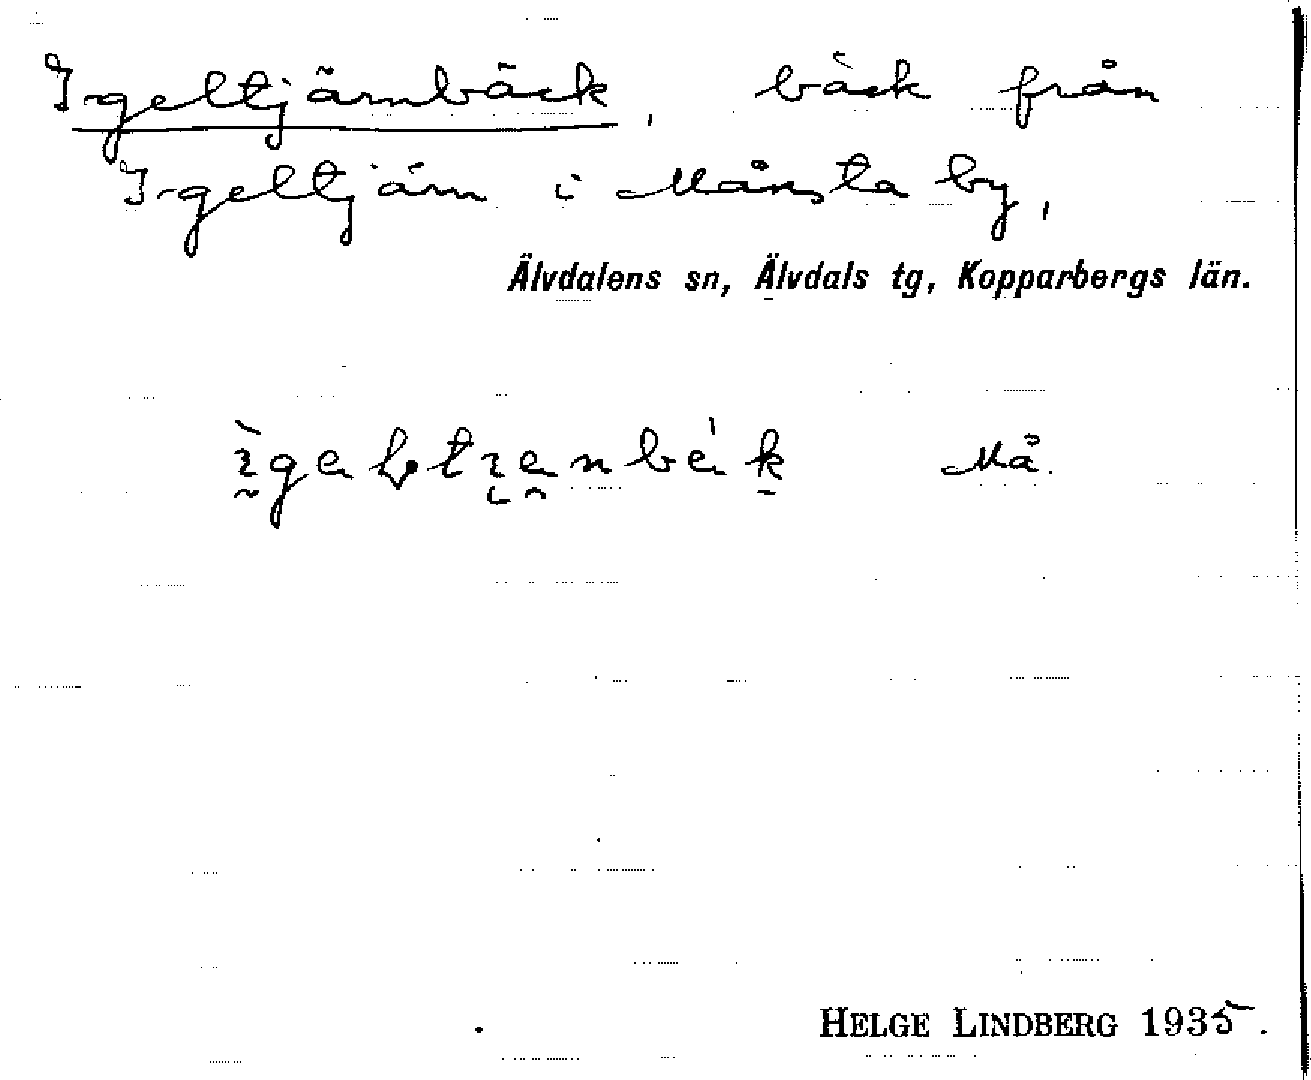 Igeltjärnbäck, bäck från
Igeltjärn i Månsta by,
Älvdalens sn, Älvdals tg, Kopparbergs län.
Må.
HELGE LINDBERG 1935.